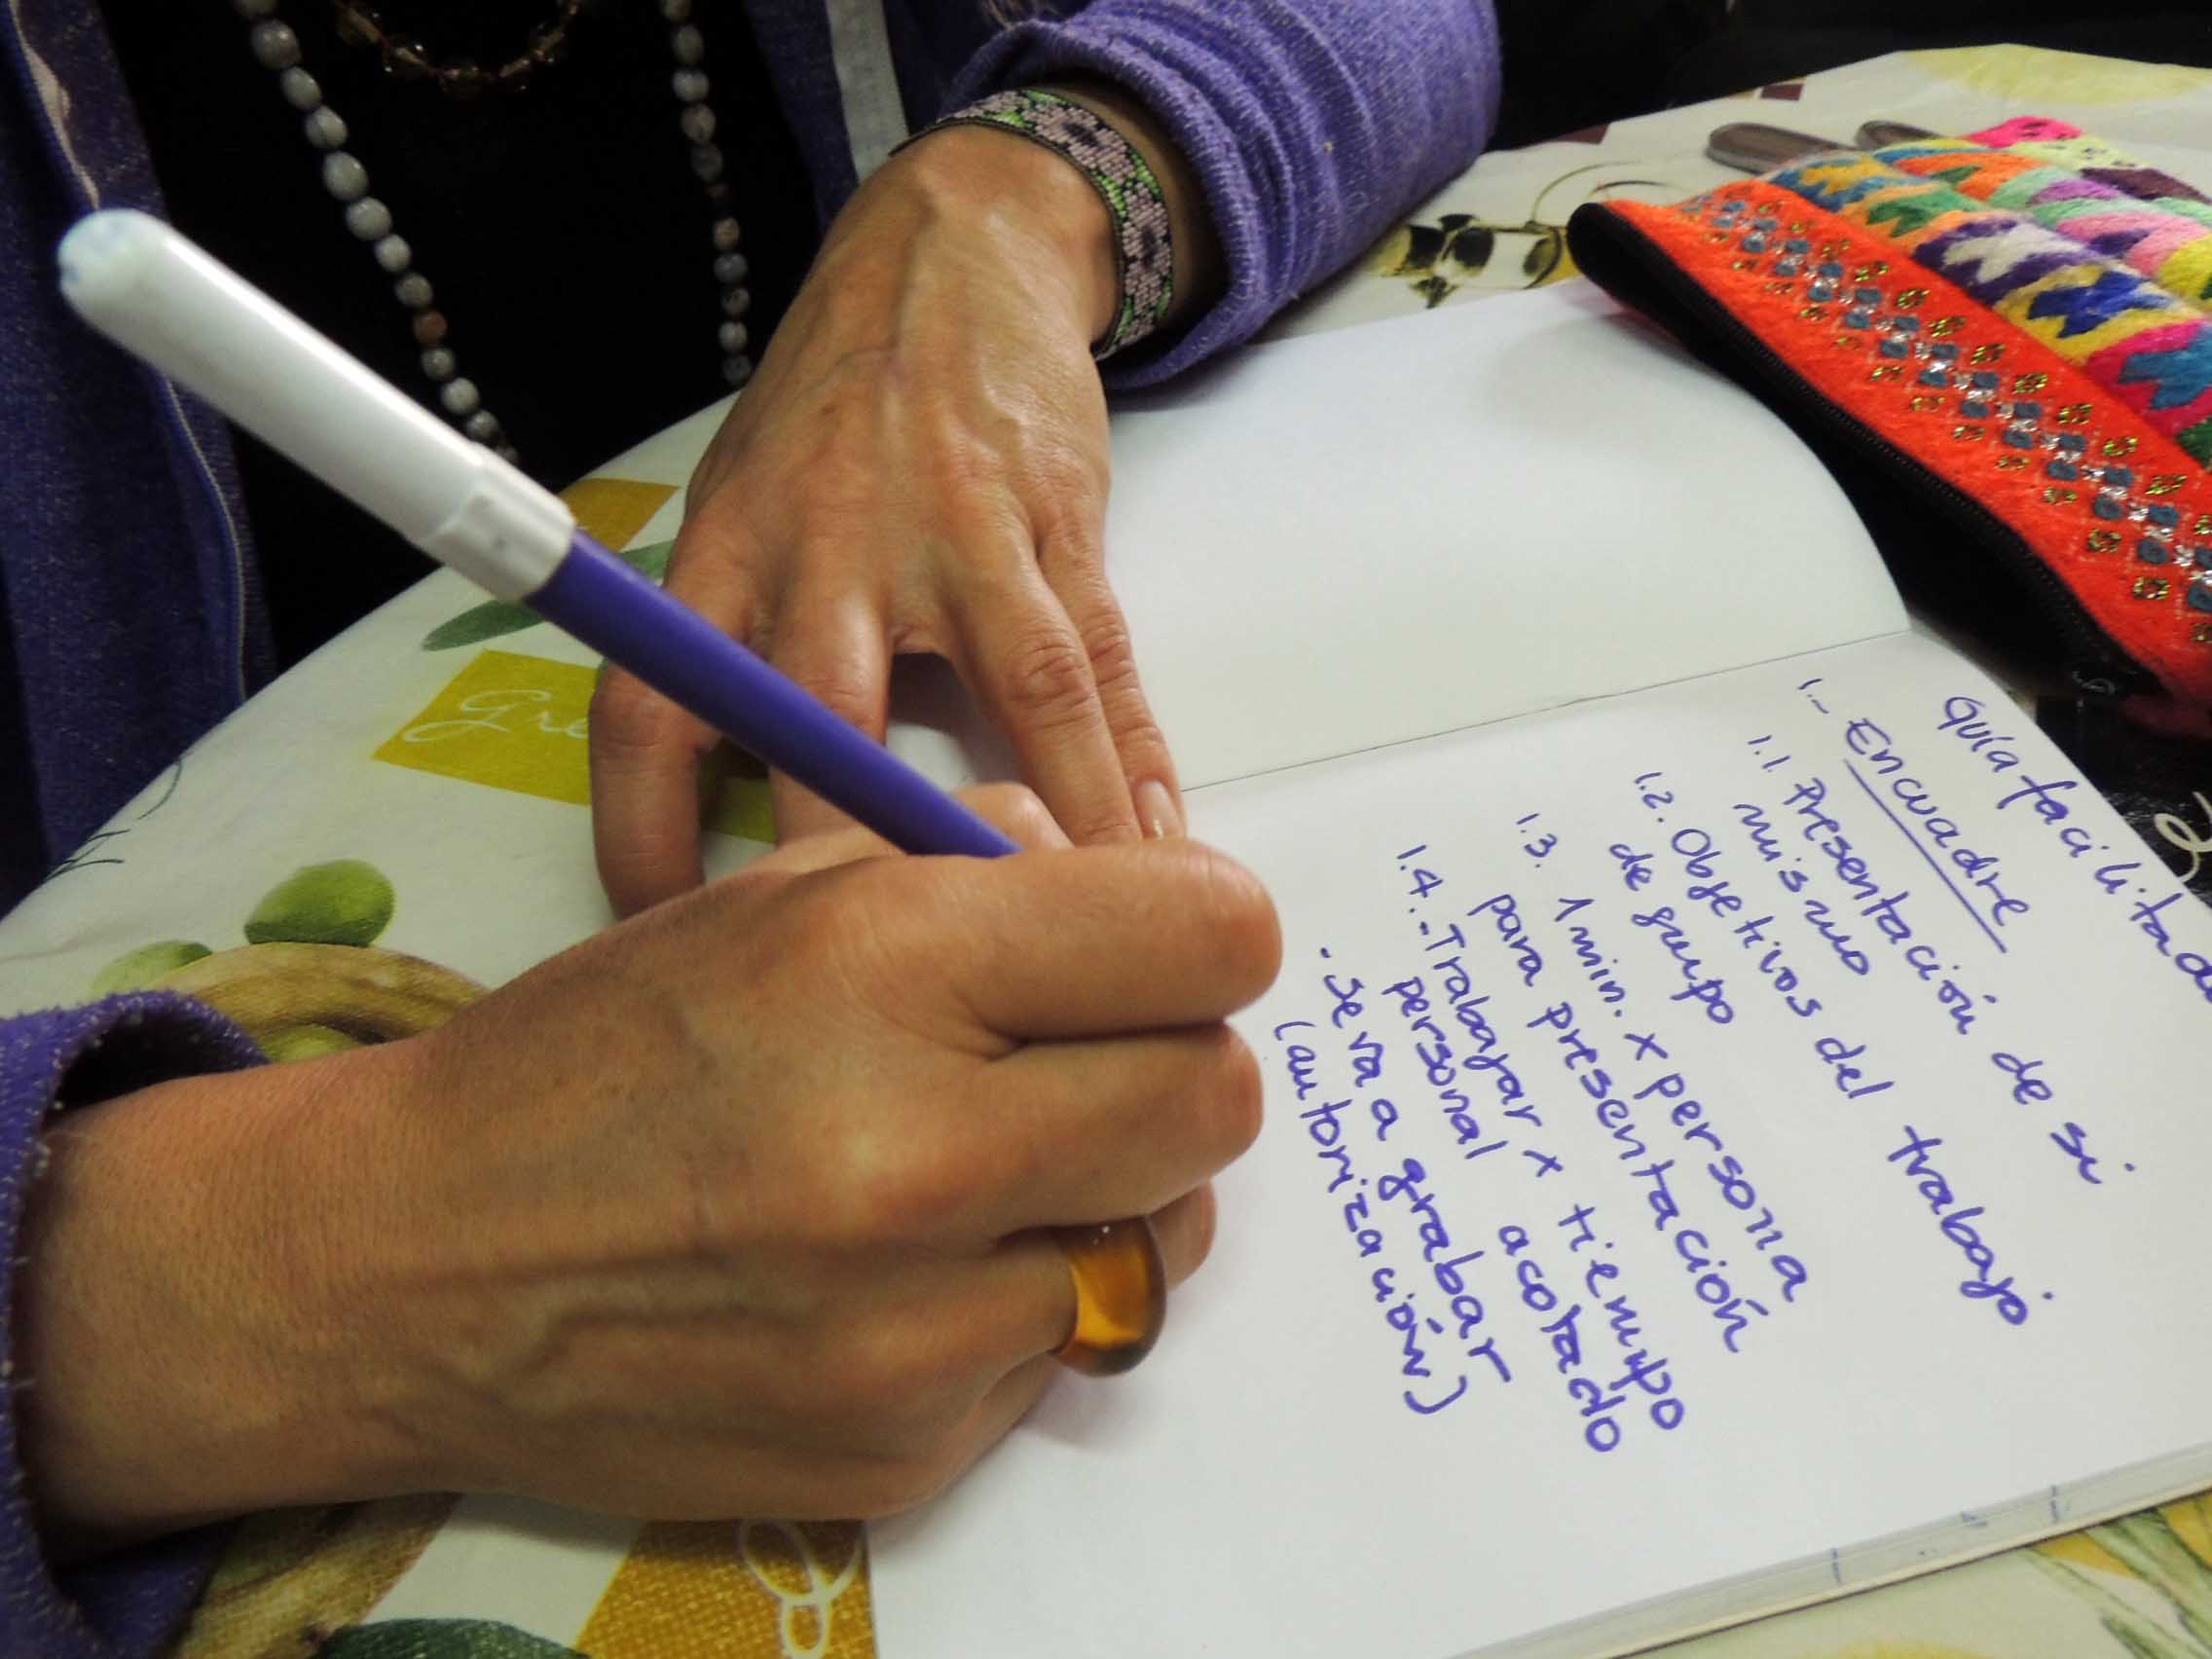 Guía facilitad
1.- Encuadre
1.1. Presentación de si
mismo
1.2. Objetivos del trabajo
de grupo
1.3. 1 min. x persona
para presentación
1.4.- Trabajar x tiempo
personal acotado
. Se va a grabar
(autorización)
Gre